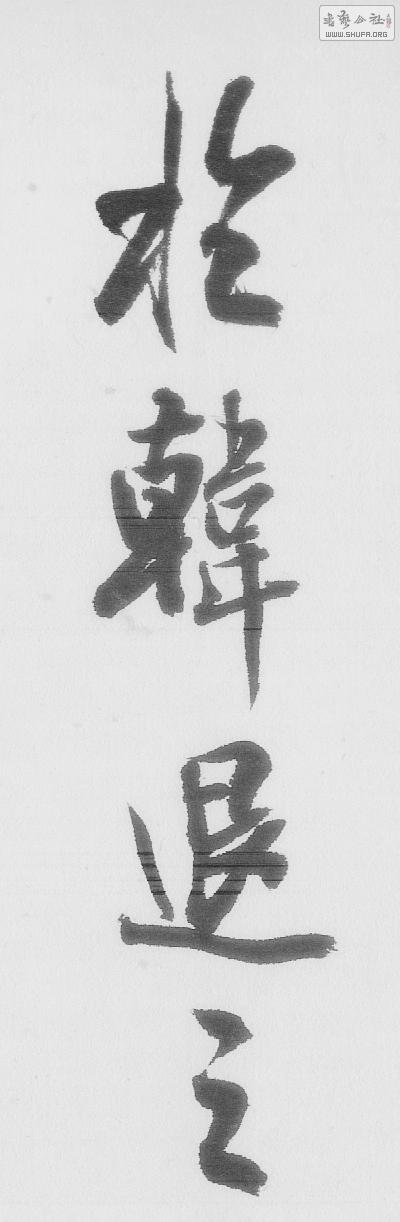 於韓退之
書藝公社
WWW.SHUFA.ORG